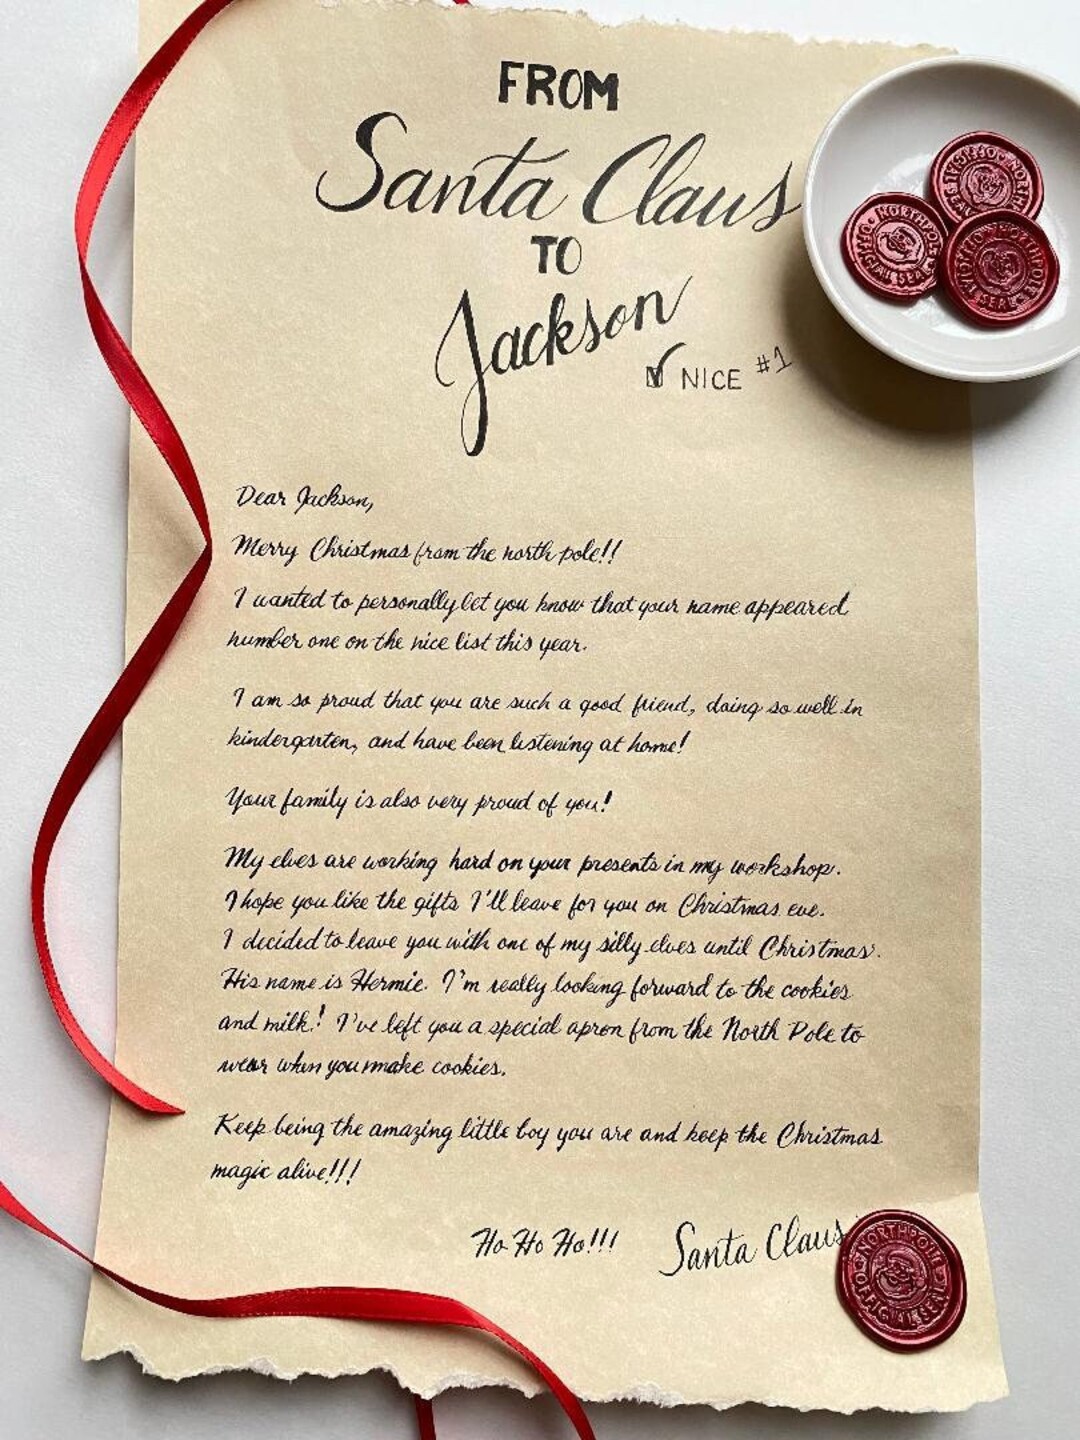 FROM
Santa Claus
TO
Jackson
NICE #1
Dear Jackson,
Merry Christmas from the north pole!!
I wanted to personally let you know that your name appeared
number one on the nice list this year.
I am so proud that you are such a good friend, doing so well in
kindergarten, and have been listening at home!
Your family is also very proud of you!
My elves are working hard on your presents in my workshop.
I hope you like the gifts I'll leave for you on Christmas eve.
I decided to leave you with one of my silly elves until Christmas.
His name is Hermie. I'm really looking forward to the cookies
and milk! I've left you a special apron from the North Pole to
wear when you make cookies.
Keep being the amazing little boy you are and keep the Christmas
magic alive!!!
Ho Ho Ho!!! Santa Claus
NORTHPOLE OFFICIAL SEAL
NORTHPOLE OFFICIAL SEAL
NORTHPOLE OFFICIAL SEAL
NORTHPOLE OFFICIAL SEAL